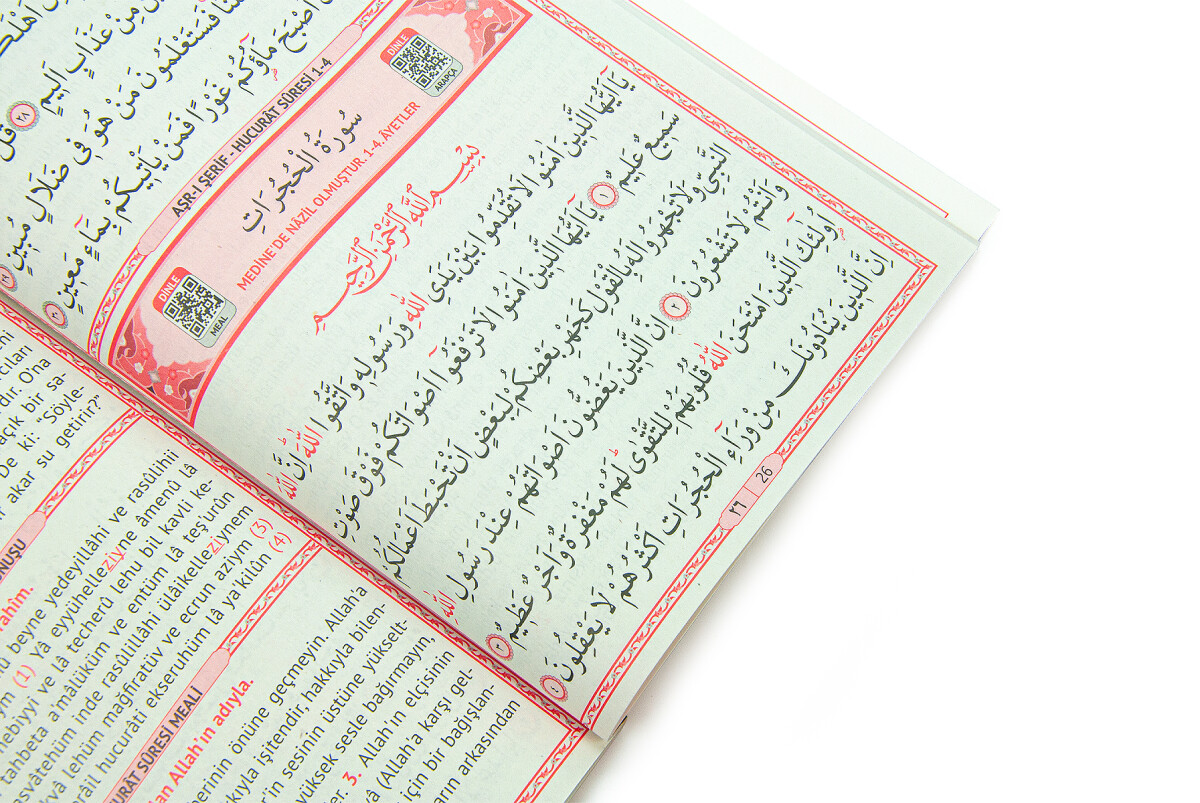 اَهْلَكَ
مِنْ عَذَابٍ اَلِيمٍ ﴿٢٨﴾ قُلْ
فَسَتَعْلَمُونَ مَنْ هُوَ فِى ضَلَالٍ مُبِينٍ ﴿٢٩﴾
اَصْبَحَ مَٓاؤُ۬كُمْ غَوْرًا فَمَنْ يَأْتِيكُمْ بِمَٓاءٍ مَعِينٍ ﴿٣٠﴾
AŞR-I ŞERİF - HUCURÂT SÛRESİ 1-4
DİNLE
ARAPÇA
سُورَةُ الْحُجُرَاتِ
DİNLE
MEAL
MEDİNE'DE NÂZİL OLMUŞTUR. 1-4. ÂYETLER
بِسْمِ اللّٰهِ الرَّحْمٰنِ الرَّحِيمِ
يَٓا اَيُّهَا الَّذِينَ اٰمَنُوا لَا تُقَدِّمُوا بَيْنَ يَدَىِ اللّٰهِ وَرَسُولِهِ وَاتَّقُوا اللّٰهَ اِنَّ اللّٰهَ
سَمِيعٌ عَلِيمٌ ﴿١﴾ يَٓا اَيُّهَا الَّذِينَ اٰمَنُوا لَا تَرْفَعُٓوا اَصْوَاتَكُمْ فَوْقَ صَوْتِ
النَّبِىِّ وَلَا تَجْهَرُوا لَهُ بِالْقَوْلِ كَجَهْرِ بَعْضِكُمْ لِبَعْضٍ اَنْ تَحْبَطَ اَعْمَالُكُمْ
وَاَنْتُمْ لَا تَشْعُرُونَ ﴿٢﴾ اِنَّ الَّذِينَ يَغُضُّونَ اَصْوَاتَهُمْ عِنْدَ رَسُولِ اللّٰهِ
اُو۬لٰٓئِكَ الَّذِينَ امْتَحَنَ اللّٰهُ قُلُوبَهُمْ لِلتَّقْوٰى لَهُمْ مَغْفِرَةٌ وَاَجْرٌ عَظِيمٌ ﴿٣﴾
اِنَّ الَّذِينَ يُنَادُونَكَ مِنْ وَرَٓاءِ الْحُجُرَاتِ اَكْثَرُهُمْ لَا يَعْقِلُونَ ﴿٤﴾
٢٦ 26
O'na
açık bir sa-
De ki: "Söyle-
akar su getirir?"
rahîm.
beyne yedeyillâhi ve rasûlihii
(1) Yâ eyyühelleziyne âmenû lâ
nebiyyi ve lâ techerû lehu bil kavli ke-
tahbeta a'mâlüküm ve entüm lâ teş'urûn
asvâtehüm inde rasûlillâhi ülâikelleziynem
lehüm mağfiratüv ve ecrun aziym (3)
hucurâti ekseruhüm lâ ya'kilûn (4)
SÛRESİ MEALİ
Allah'ın adıyla.
önüne geçmeyin. Allah'a
işitendir, hakkıyla bilen-
sesinin üstüne yükselt-
yüksek sesle bağırmayın,
3. Allah'ın elçisinin
(Allah'a karşı gel-
için bir bağışlan-
arkasından